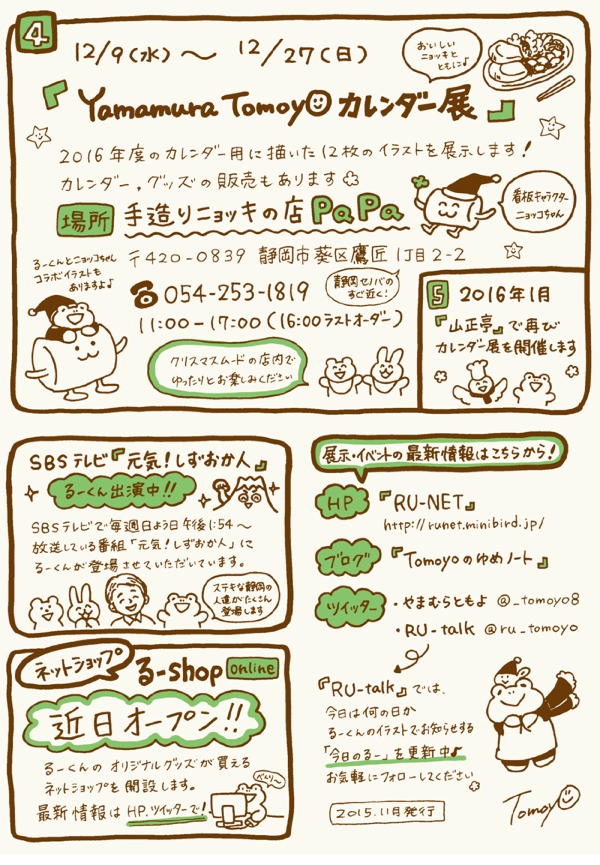 4
12/9(水)～12/27(日)
おいしい
ニョッキと
ともに♪
『Yamamura Tomoyo カレンダー展』
2016年度のカレンダー用に描いた12枚のイラストを展示します!
カレンダー、グッズの販売もあります
場所 手造りニョッキの店 PaPa
看板キャラクター
ニョッコちゃん
〒420-0839 静岡市葵区鷹匠1丁目2-2
るーくんとニョッコちゃん
コラボイラストも
ありますよ♪
☎054-253-1819
静岡セノバの
すぐ近く!
11:00-17:00(16:00ラストオーダー)
クリスマスムードの店内で
ゆったりとお楽しみください
5 2016年1月
『山正亭』で再び
カレンダー展を開催します
SBSテレビ『元気!しずおか人』
るーくん出演中!!
SBSテレビで毎週日よう日午後1:54～
放送している番組「元気!しずおか人」に
るーくんが登場させていただいています。
ステキな静岡の
人達がたくさん
登場します
ネットショップ る-shop online
近日オープン!!
るーくんのオリジナルグッズが買える
ネットショップを開設します。
最新情報はHP、ツイッターで!
展示・イベントの最新情報はこちらから!
HP 『RU-NET』
http://runet.minibird.jp/
ブログ 『Tomoyoのゆめノート』
ツイッター ・やまむらともよ @_tomoyo8
・RU-talk @ru_tomoyo
『RU-talk』では、
今日は何の日か
るーくんのイラストでお知らせする
「今日のるー」を更新中♪
お気軽にフォローしてください
2015.11月発行
Tomoyo